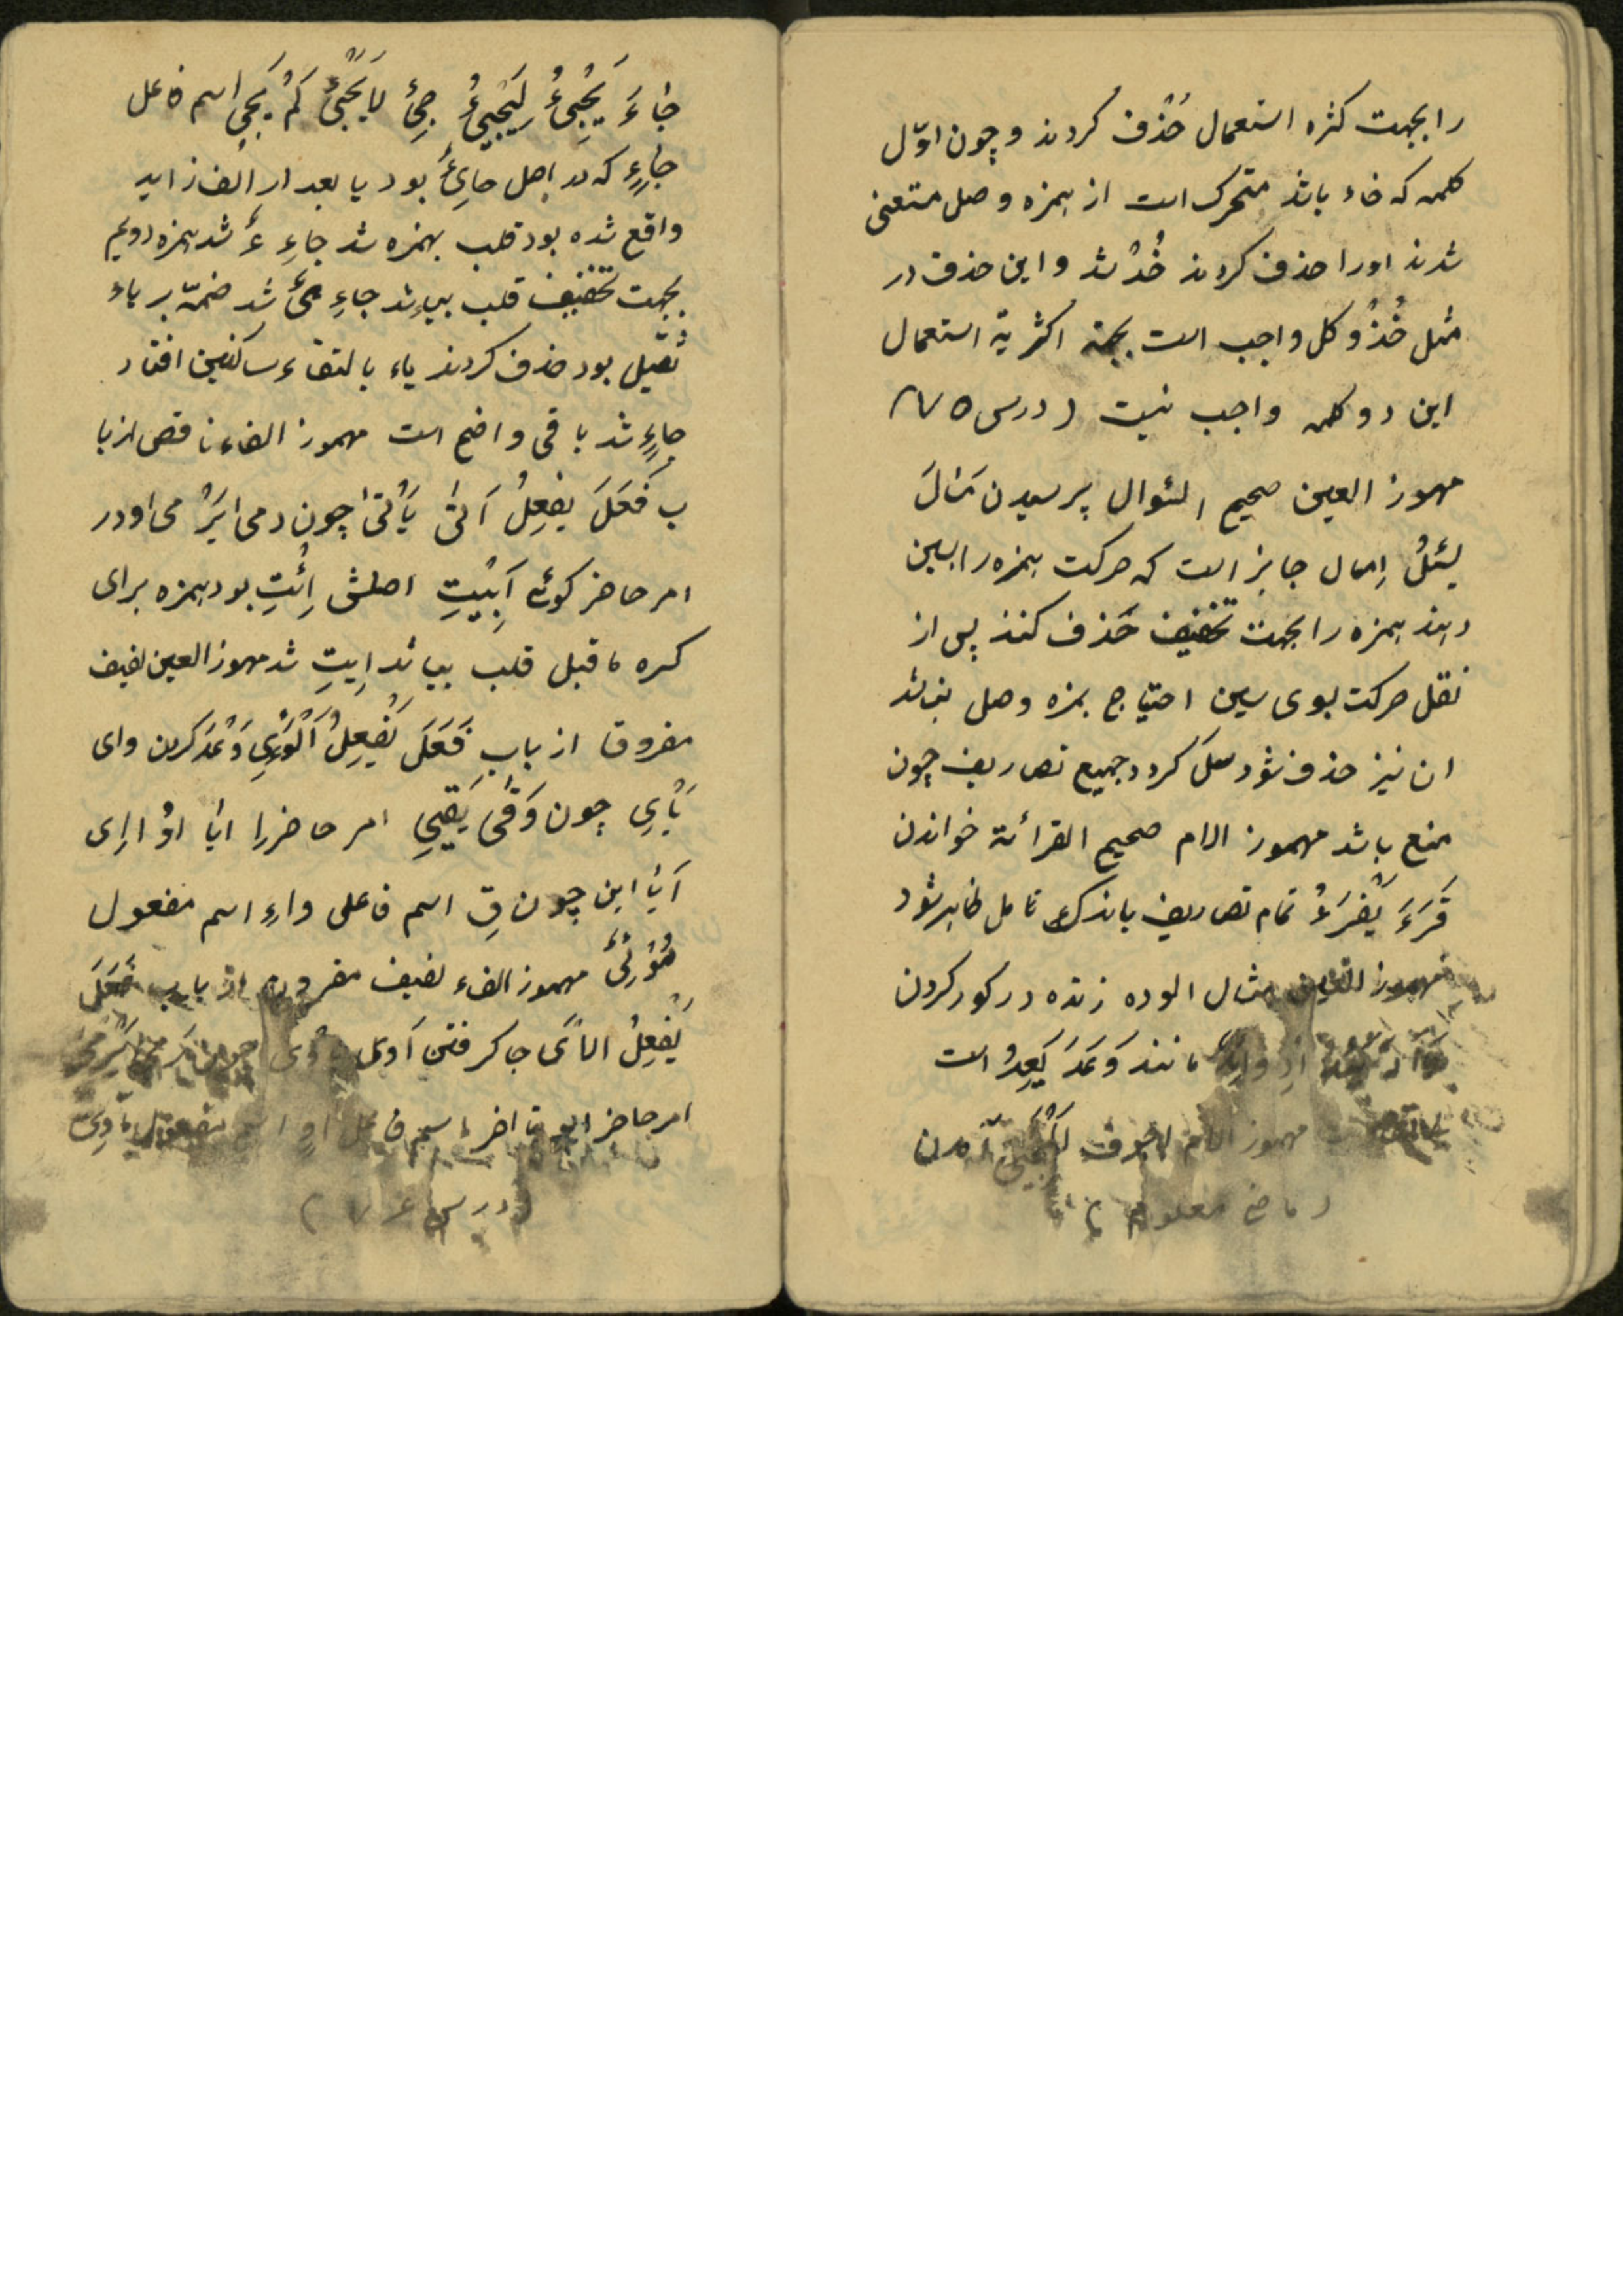 را بجهت کثره استعمال حُذف کردند و چون اوّل
کلمه که خاء باشد متحرک است از همزه وصل مستغنی
شدند اورا حذف کردند خُذ شد و این حذف در
مثل خُذ و کل واجب است بجهة اکثریة استعمال
این دو کلمه واجب نیست (درس ۷۵)
مهموز العین صحیح السئوال پرسیدن سَئالَ
یسْئلُ اِسال جایز است که حرکت همزه را بسین
دهند همزه را بجهت تخفیف حَذف کنند پس از
نقل حرکت بسوی سین احتیاج بهمزه وصل نباشد
ان نیز حذف شود سَل کردد جمیع تصاریف چون
منع باشد مهموز الام صحیح القرائة خواندن
قَرَءَ یَقْرَءُ تمام تصاریف باندک تامل ظاهر شود
مهموز العین مثال الوده زنده در کور کردن
مانند وَعَدَ یَعِدُ است
مهموز الام اجوف المجیئ آمدن
(ماضی معلوم)
جٰاءَ یَجْیِئُ لِیَجْییءُ جِئ لا یَجْیئُ لَمْ یَجیِ اسم فاعل
جٰاءٍ که در اصل جایِئُ بود یا بعد از الف زاید
واقع شده بود قلب بهمزه شد جاءِءُ شد همزه دویم
بجهت تخفیف قلب بیاء شد جاءِ یُ شد ضمّه بر یاء
ثقیل بود حذف کردند یاء بالتقاء ساکنین افتاد
جاءٍ شد باقی واضح است مهموز الفاء ناقص از با
ب فَعَلَ یفعِلُ اَتیٰ یَأتیٰ چون رمی ایَرْمی اودر
امر حاضر کوئی اَییْتِ اصلش اِئْتِ بود همزه برای
کسره ماقبل قلب بیا شد اِیتِ شد مهموز العین لفیف
مفروق از باب فَعَلَ یَفْعِلُ اَلْوَءْیِ وَعْدَ کردن وای
یَأیِ چون وَقٰی یَقیِ امر حاضر اِ ایٰا اوُا اِی
اَیٰا این چون قِ اسم فاعل واءٍ اسم مفعول
مُؤْرِئیُ مهموز الفاء لفیف مقرون از باب فَعَلَ
یَفْعِلُ الاَیَ جا کرفتن اَوی
امر حاضر ایو تا اخر اسم فاعل اوٍ اسم مفعول مأوِیّ
(درس ۷۶)